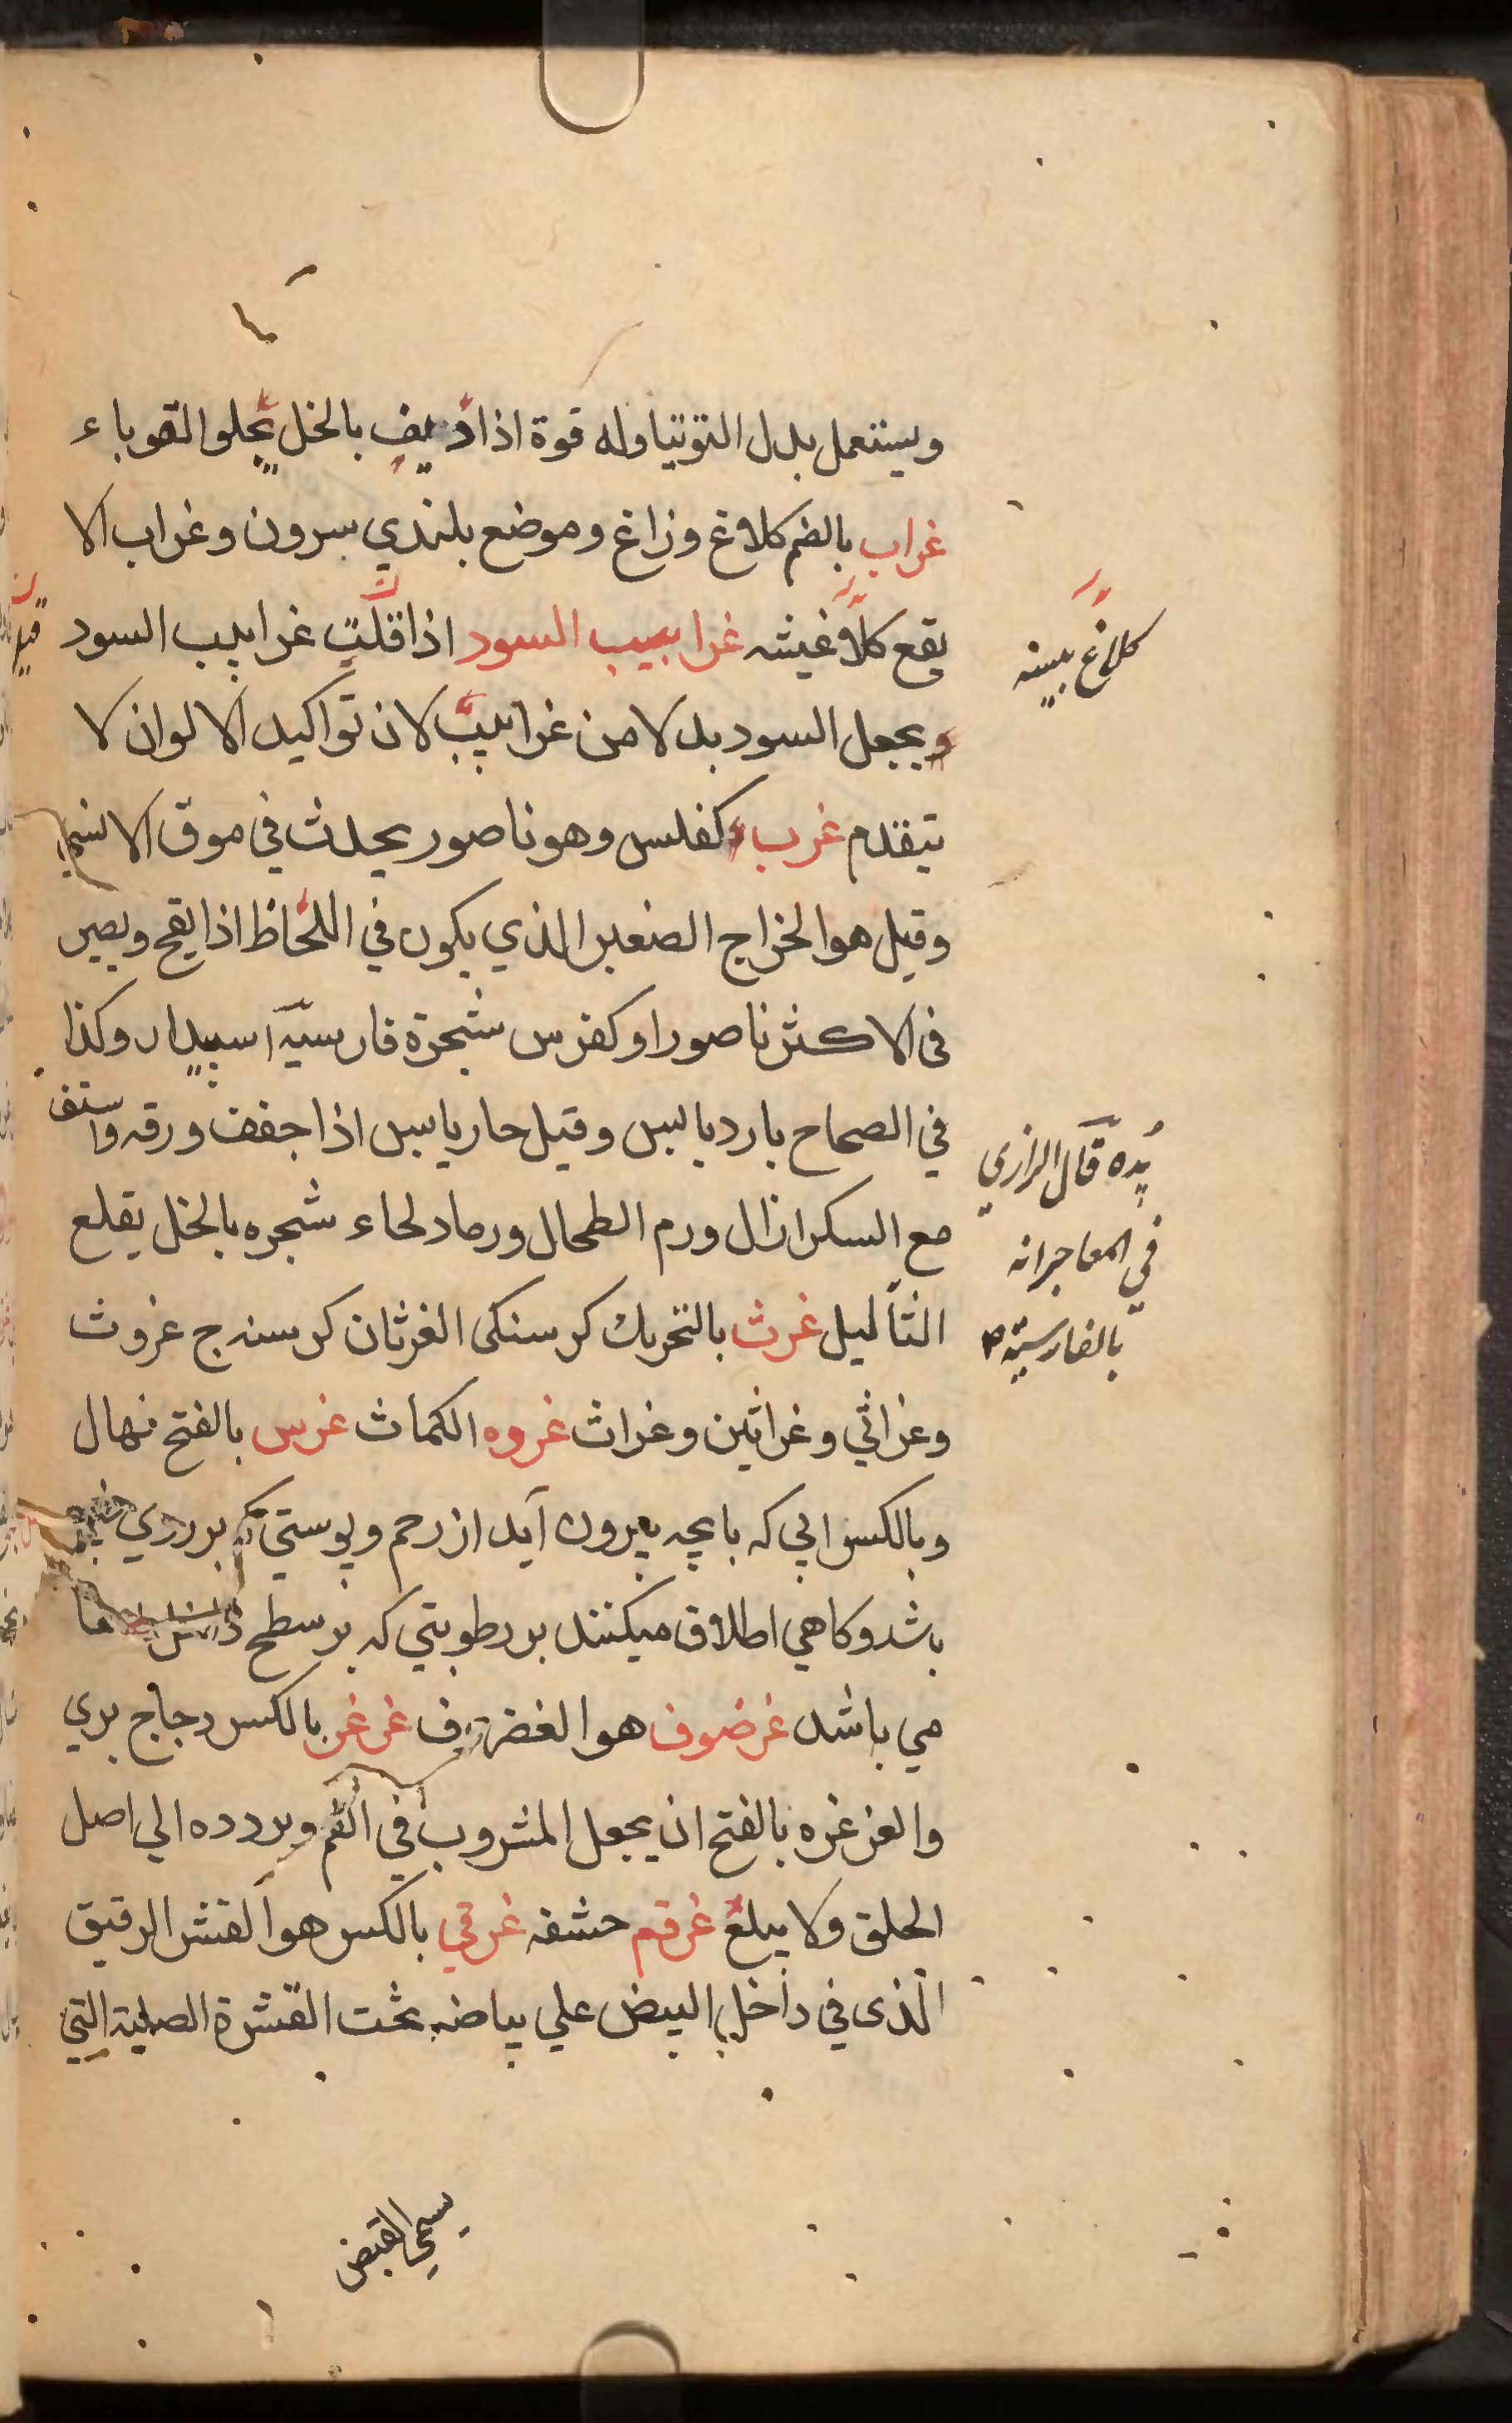 ويستعمل بدل التوتيا وله قوة اذا ديف بالخل يجلو القوباء
غراب بالضم كلاغ وزاغ وموضع بلندي سرون وغراب الا
يقع كلاغيشه غرابيب السود اذا قلت غرابيب السود
ويجعل السود بدلا من غرابيب لان تواكيد الالوان لا
يتقدم غرب كفلس وهو ناصور يحدث في موق الانسي
وقيل هو الخراج الصغير الذي يكون في اللحاظ اذا يقيح ويصير
في الاكثر ناصورا وكفرس شجرة فارسية اسبيدار وكذا
في الصحاح بارد يابس وقيل حار يابس اذا جفف ورقه واستف
مع السكر ازال ورم الطحال ورماد لحاء شجره بالخل يقلع
الثآليل غرث بالتحريك كرسنكى الغرثان كرسنه ج غروث
وغراثي وغراثين وغراث غروه الكمات غرس بالفتح نهال
وبالكسر ابي كه بابچه بيرون آيد از رحم وپوستي كه بر روي
باشد وكاهي اطلاق ميكنند بر رطوبتي كه بر سطح ما
مي باشد غرضوف هو الغضروف غرغر بالكسر دجاج بري
والغرغره بالفتح ان يجعل المشروب في الفم ويردده الي اصل
الحلق ولا يبلع غرقم حشفه غرقي بالكسر هو القشر الرقيق
الذى في داخل البيض علي بياضه تحت القشرة الصلبة التي
يسمي القيض
كلاغ بيسه
پده قال الرازي
في المعاجرانه
بالفارسية